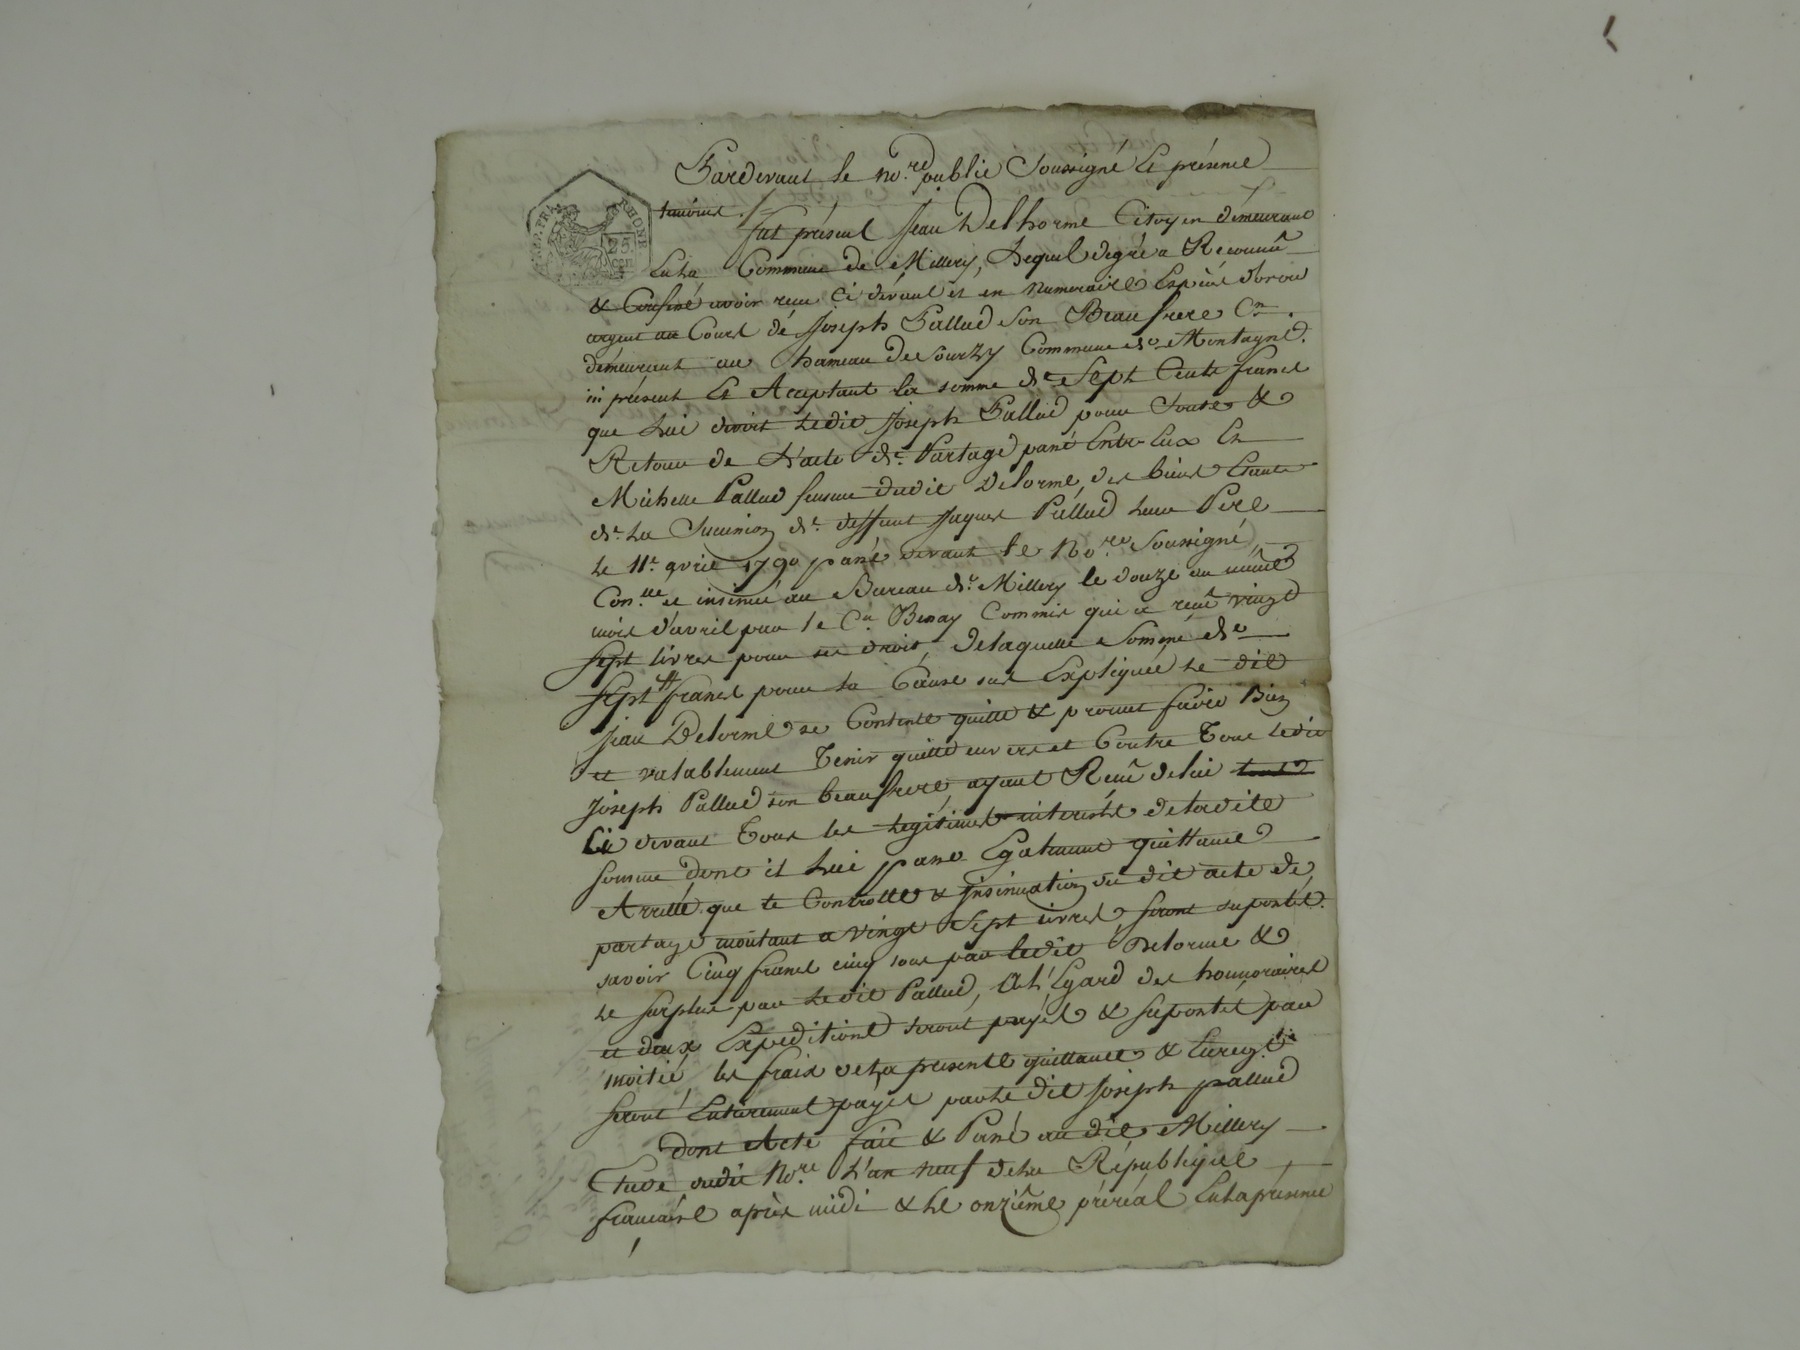 Pardevant le no.re public Soussigné Et présence
témoins
RHONE
25
CEN
fut présent Jean Delhorme Citoyen démeurant
En la Commune de Millery, Lequel dégré a Reconnû
& Confessé avoir reçu Ci dévant et en Numeraire Espèces d'or ou
argent au Cours dé Joseph Pallud son Beaufrere C.n
démeurant au hameau de Sourzy Commune de Montagny
ici présent Et Acceptant la somme de Sept Cents francs
que Lui devoit Ledit Joseph Pallud pour Soute &
Retour de L'acte de Partage passé Entre Eux Et
Michelle Pallud femme dudit Delorme, des biens Etants
de La Succession de deffunt Jaques Pallud Leur Pere
Le 11.e avril 1790 passé devant le No.re Soussigné
Con.lle et insinué au Bureau de Millery le douze du même
mois d'avril par le C.n Benay Commis qui a reçu vingt
sept livres pour ses droits, De laquelle Somme de
Sept Ct francs pour la Cause sus Expliquée Le dit
Jean Delorme se Contente quitte & promet faire Bien
et valablement Tenir quitte envers et Contre Tous Ledit
Joseph Pallud son beaufrere, ayant Reçu de lui
Ci devant Tous les Légitimes interêts de ladite
somme dont il Lui passe Egalement quittance
Arrêté que le Controlle & insinuation du dit acte de
partage montant a vingt Sept livres seront suportés
savoir Cinq francs cinq sous par ledit Delorme &
Le surplus par Ledit Pallud, A L'Egard des honnoraires
et deux Expeditions seront payés & suportés par
moitié, les fraix de La presente quittance & Enreg.
seront Entierement payés par Le dit Joseph Pallud
Dont Acte fait & Passé au dit Millery
Etude dudit No.re L'an neuf de La République
française après midi & Le onziême préréal En La présence